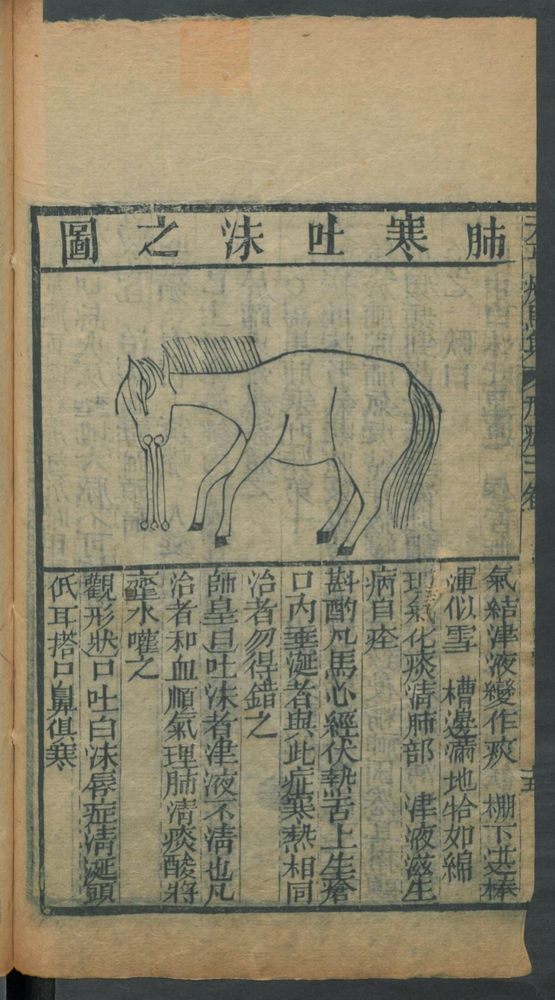 肺寒吐沫之圖
氣結津液變作痰　棚下洪棒
渾似雪　槽邊滿地恰如綿
理氣化痰清肺部　津液滋生
病自痊
斟酌凡馬心經伏熱舌上生瘡
口內垂涎者與此症寒熱相同
治者勿得錯之
師皇曰吐沫者津液不清也凡
治者和血順氣理肺清痰酸漿
虀水嚾之
觀形狀口吐白沫唇症清涎頭
低耳搭口鼻俱寒